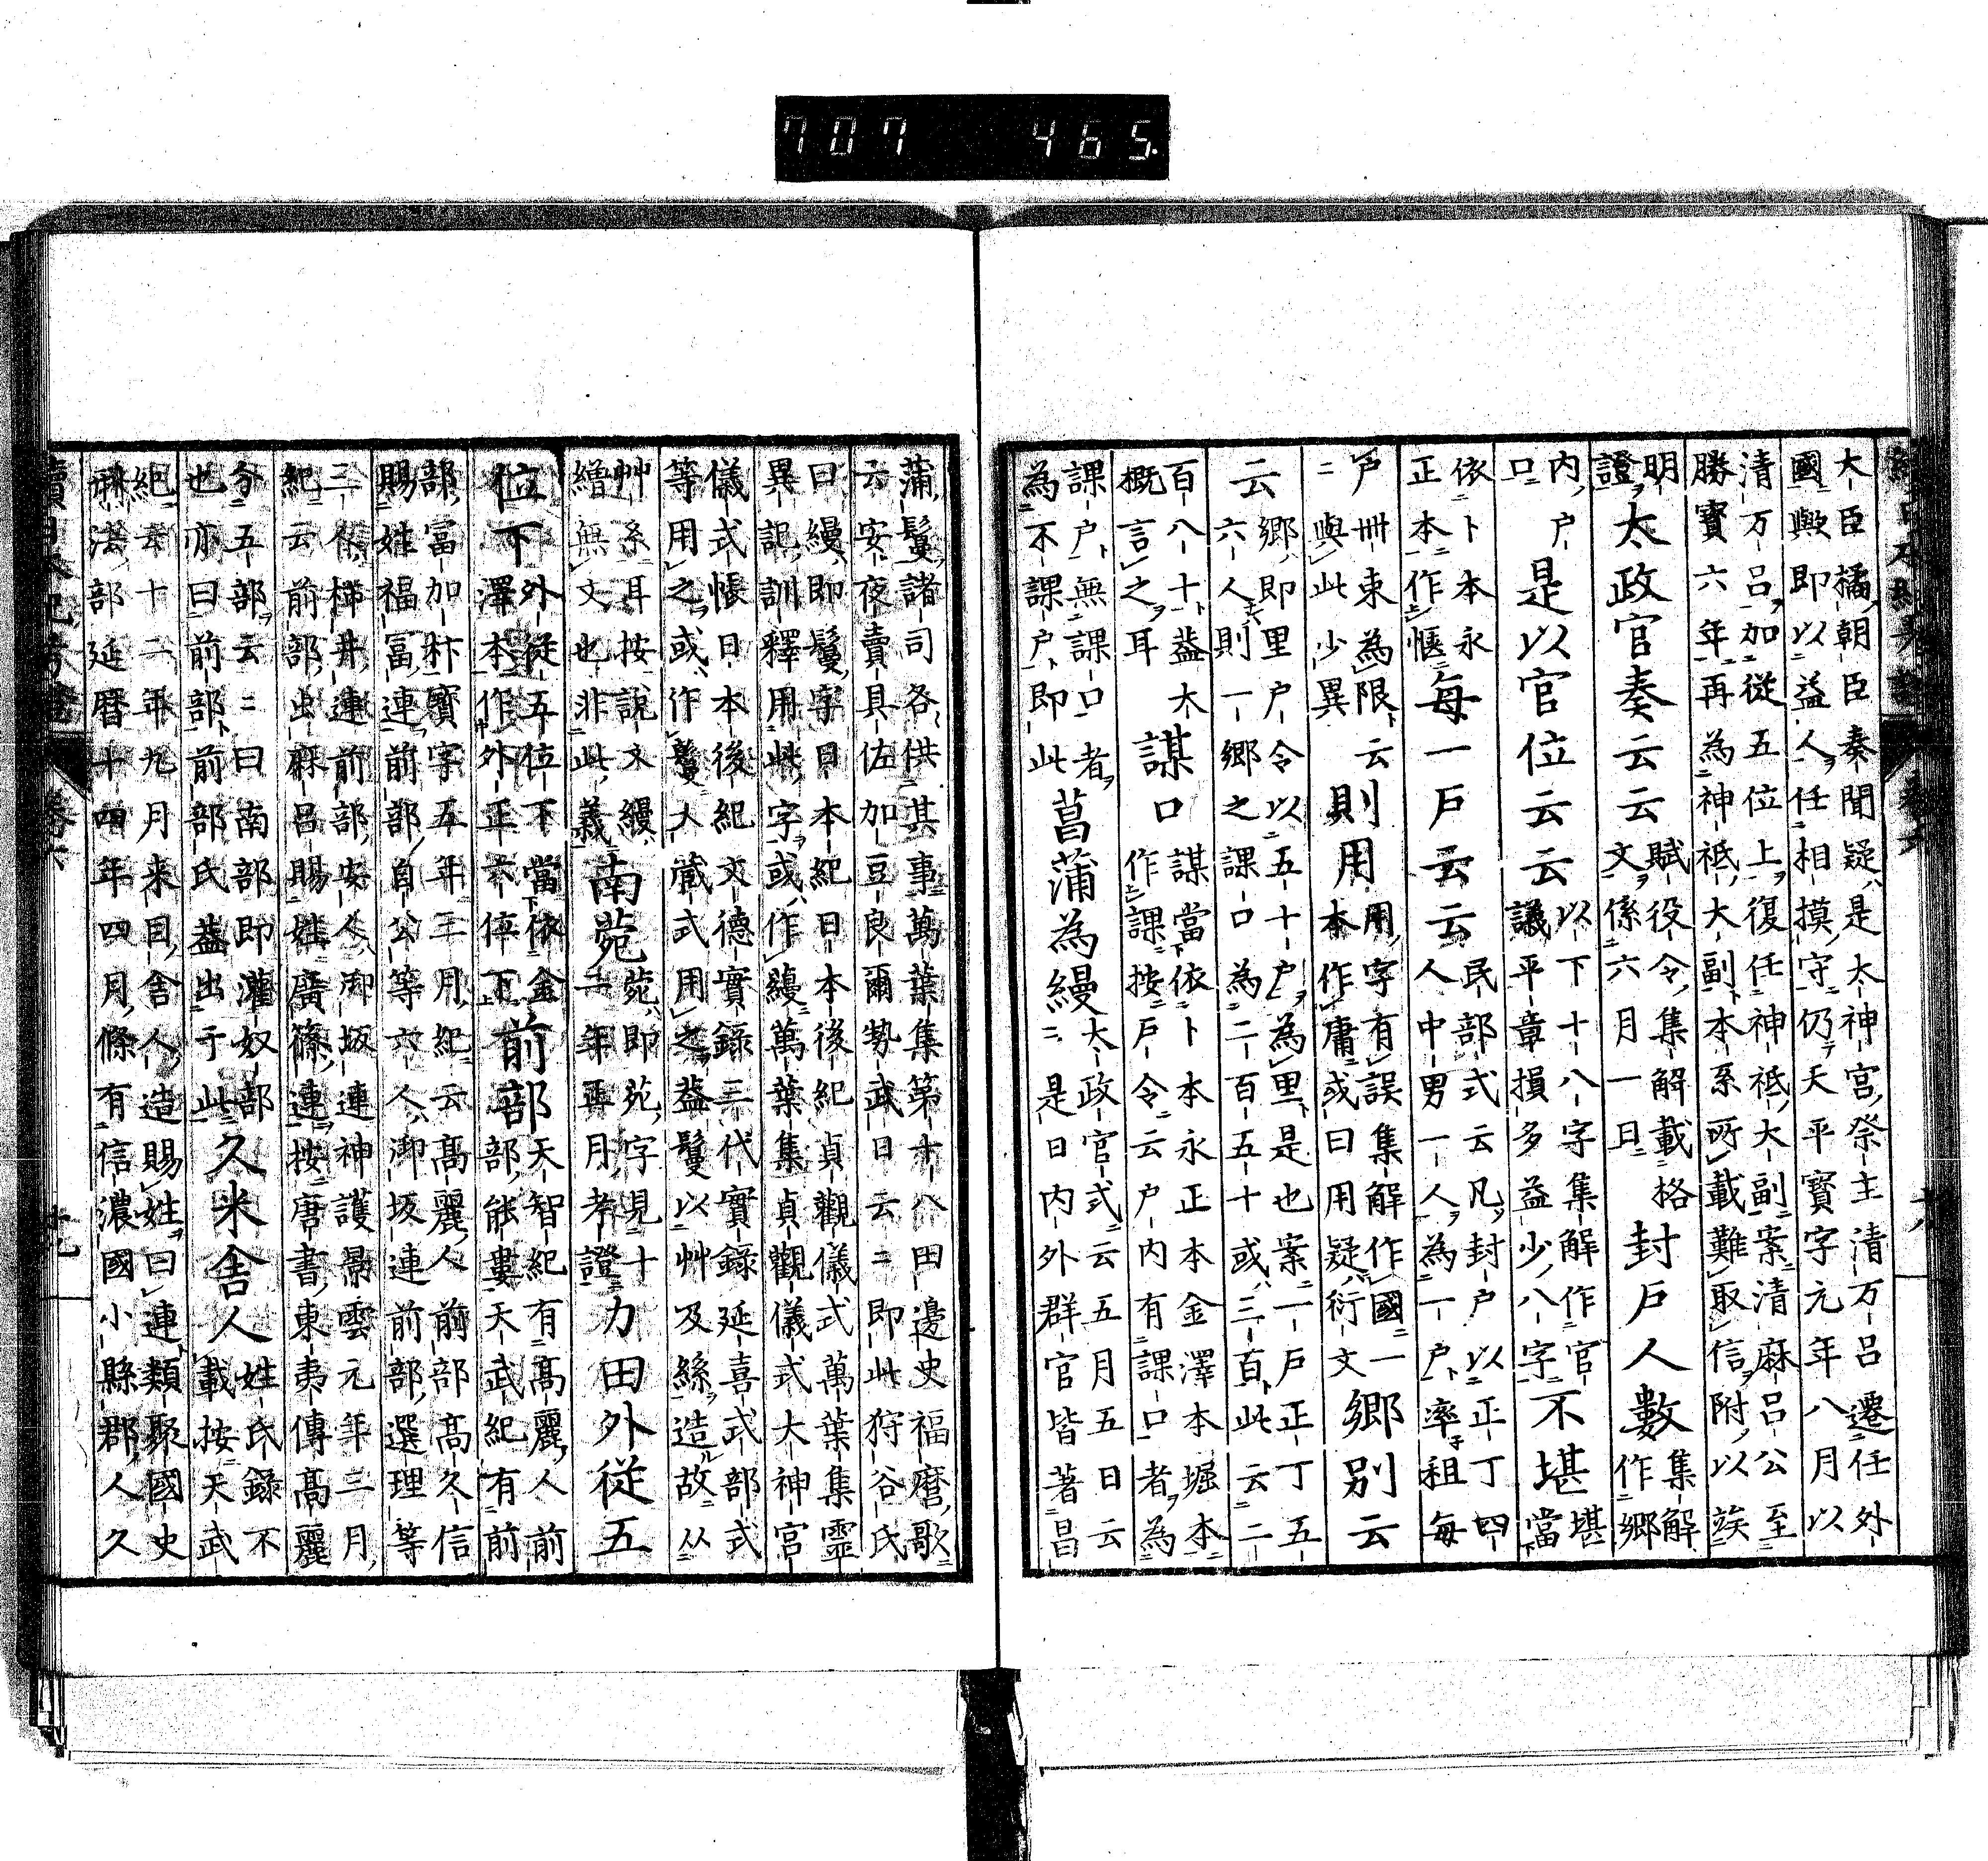 707 465
大臣橘朝臣奏聞疑是太神宮祭主清万呂遷任外
國歟即以益人任相摸守仍天平寶字元年八月以
清万呂加從五位上復任神祇大副案清麻呂公至
勝寶六年再為神祇大副本系所載難取信附以竢
明
證太政官奏云云賦役令集解載格
文係六月一日封戸人數集解
作郷
内戸
口是以官位云云以下十八字集解作官
議平章損多益少八字不堪堪
當
依卜本永
正本作愜每一戸云云民部式云凡封戸以正丁四
人中男一人為一戸率租每
戸卌束為限云
二與此少異則用用字有誤集解作國一
本作庸或曰用疑衍文郷別云
云郷即里戸令以五十戸為里是也案一戸正丁五
六人則一郷之課口為二百五十或三百此云二
百八十蓋大
概言之耳謀口謀當依卜本永正本金澤本堀本
作課按戸令云戸内有課口者為
課戸無課口者
為不課戸即此菖蒲為縵大政官式云五月五日云
二是日内外群官皆著昌
蒲鬘諸司各供其事萬葉集第十八田邊史福麿歌
云安夜賣具佐加豆良爾勢武日云二即此狩谷氏
曰縵即鬘字日本紀日本後紀貞觀儀式萬葉集靈
異記訓釋用此字或作蘰萬葉集貞觀儀式大神宮
儀式帳日本後紀文德實錄三代實錄延喜式部式
等用之或作鬘大藏式用之蓋鬘以艸及絲造故从
艸糸耳按說文縵
繒無文也非此義南苑苑即苑字見十
一年正月考證力田外從五
位下外從五位下當依金
澤本作外正六位下前部天智紀有高麗人前
部能婁天武紀有前
部富加抃寶字五年三月紀云高麗人前部高久信
賜姓福富連前部自公等六人御坂連前部選理等
三人柿井連前部安人御坂連神護景雲元年三月
紀云前部虫麻呂賜姓廣篠連按唐書東夷傳高麗
分五部云二曰南部即灌奴部
也亦曰前部前部氏蓋出于此久米舍人姓氏錄不
載按天武
紀云十二年九月来目舍人造賜姓曰連類聚國史
刑法部延曆十四年四月條有信濃國小縣郡人久